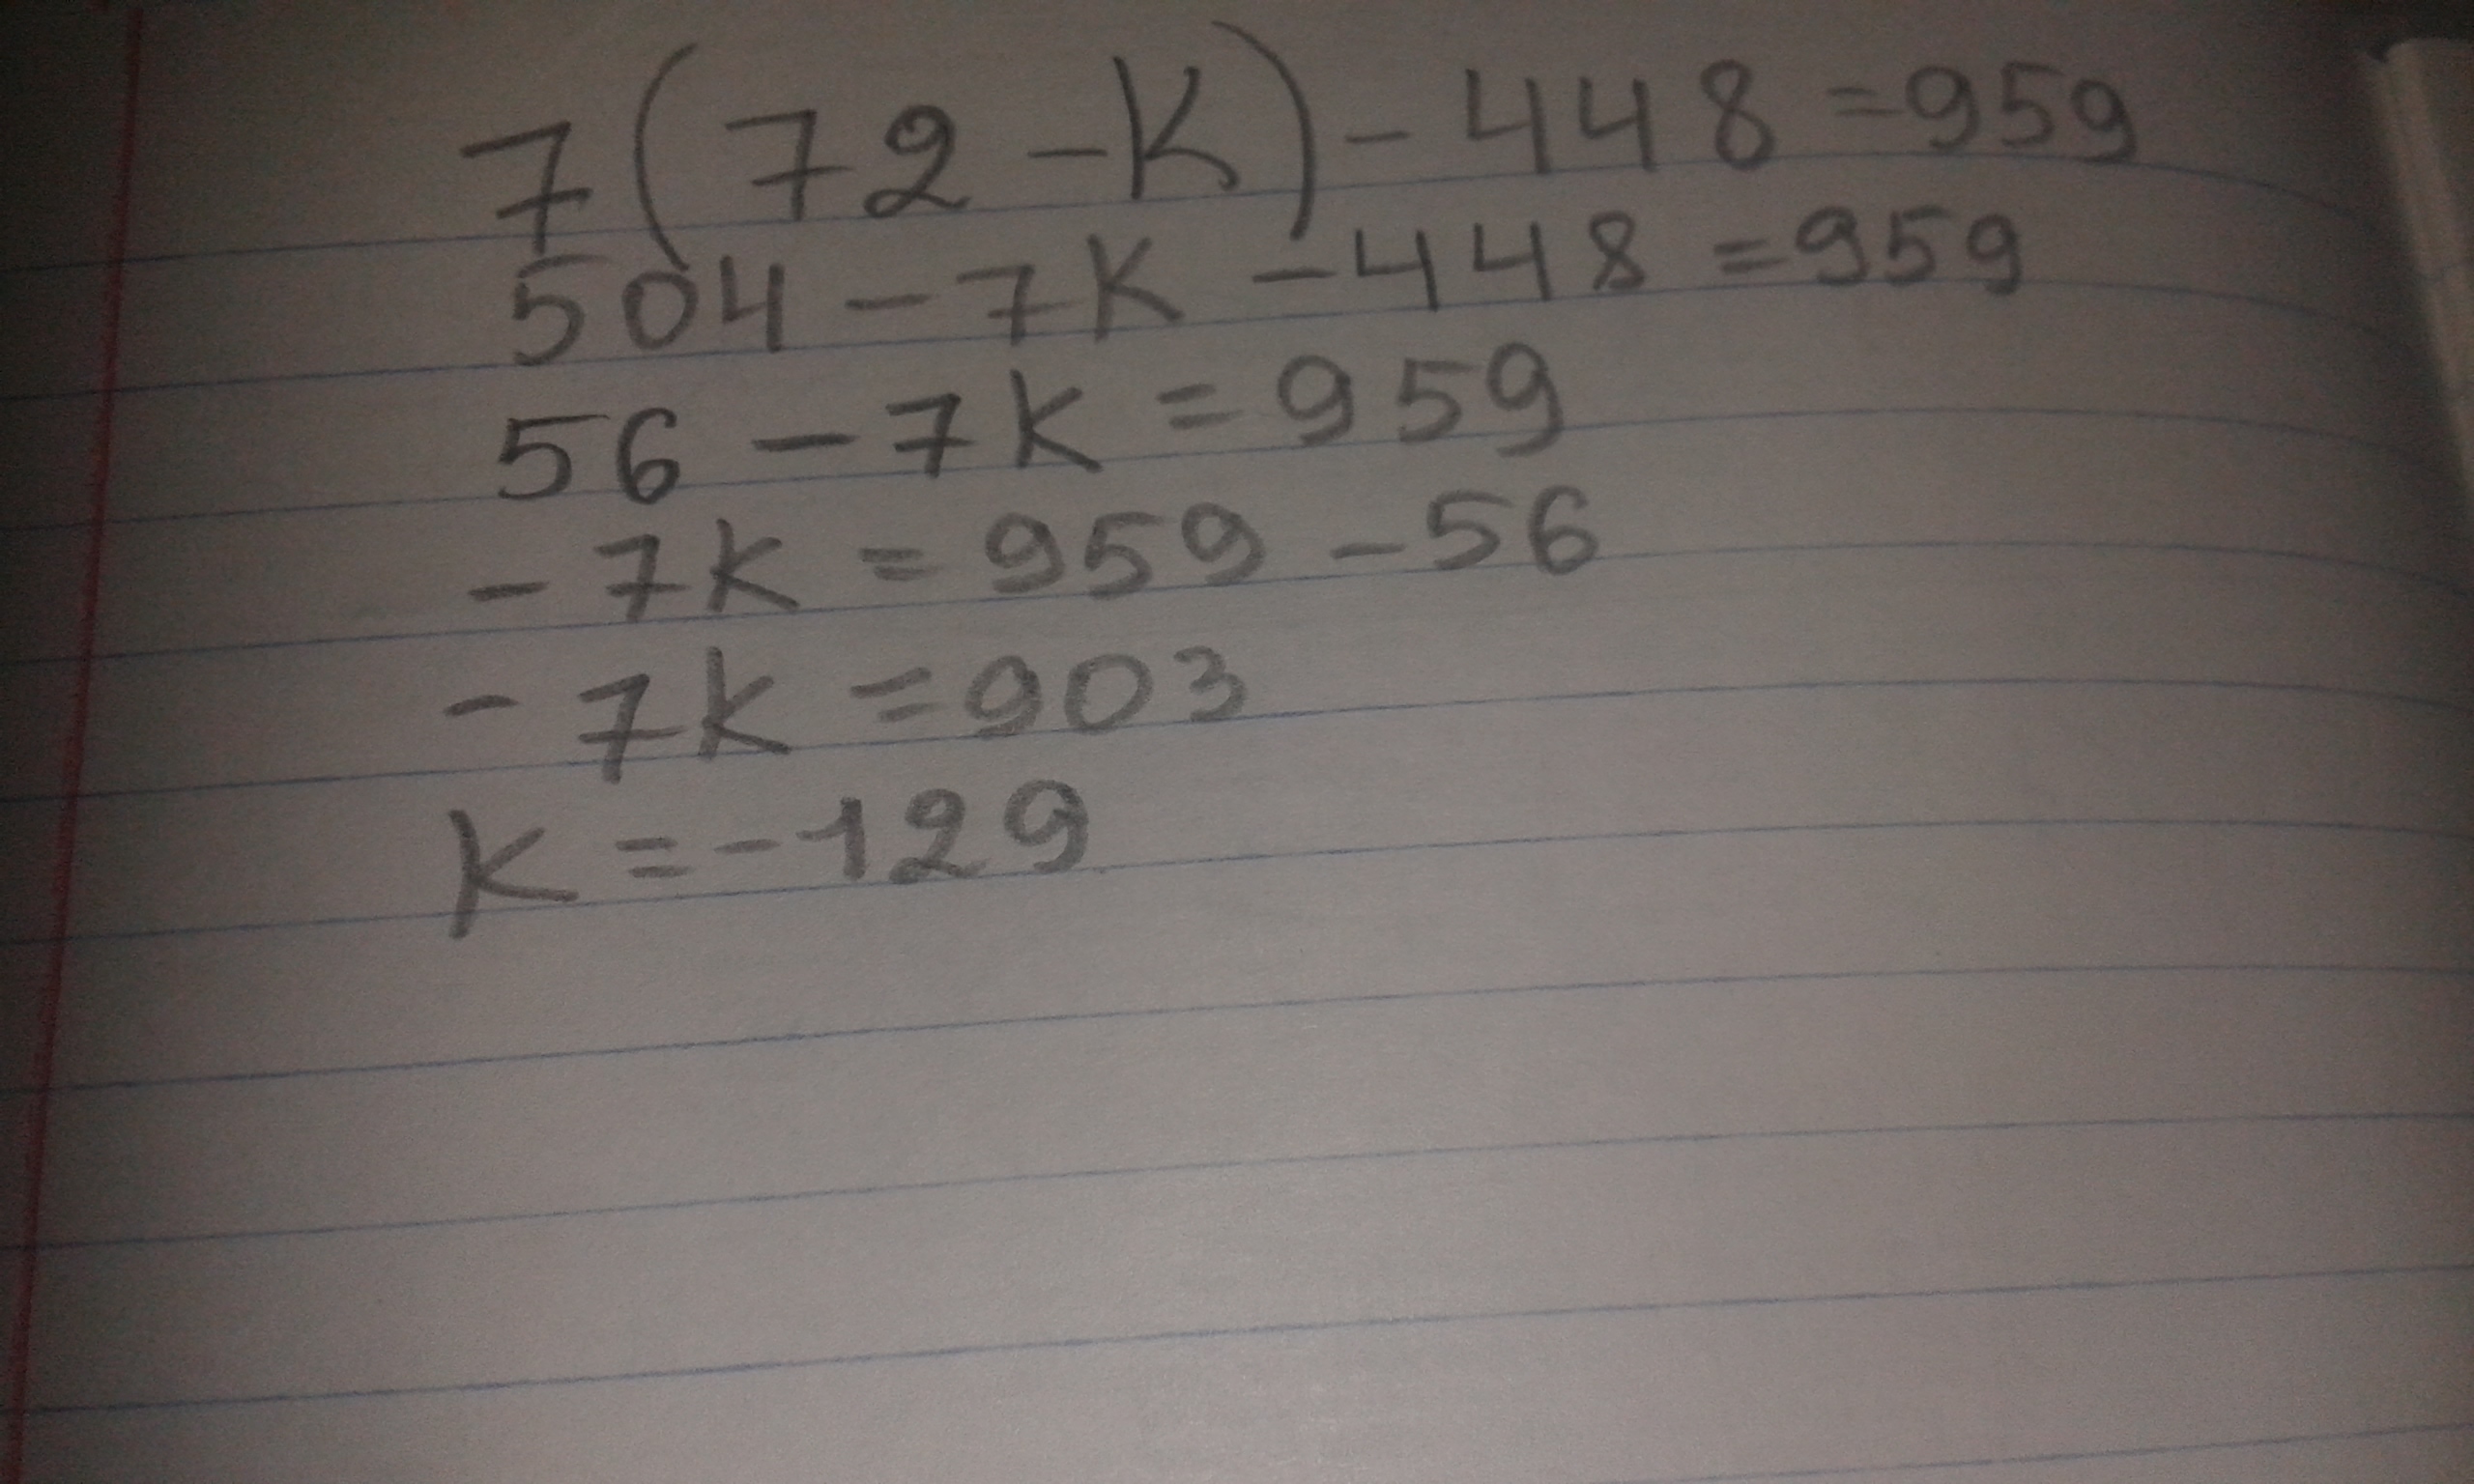 7(72-K)-448=959
504-7K-448=959
56-7K=959
-7K=959-56
-7K=903
K=-129